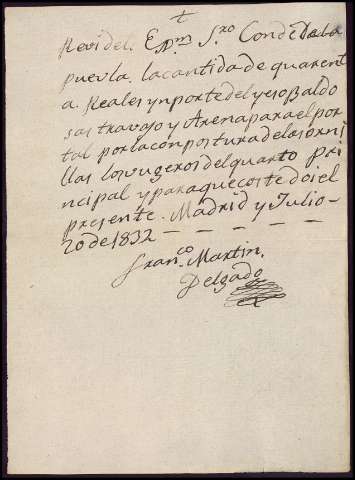 †
Revi del. Epm Sro Conde de la
puevla. la cantida de quarent
a. Reales ynporte del yeso Baldo
sas travajo y Arena para el por
tal por la conpostura de las orni
llas los ugeros del quarto pri
ncipal y para que coste doi el
presente. Madrid y Julio-
20 de 1832 - - - - - -
Franco. Martin.
Delgado